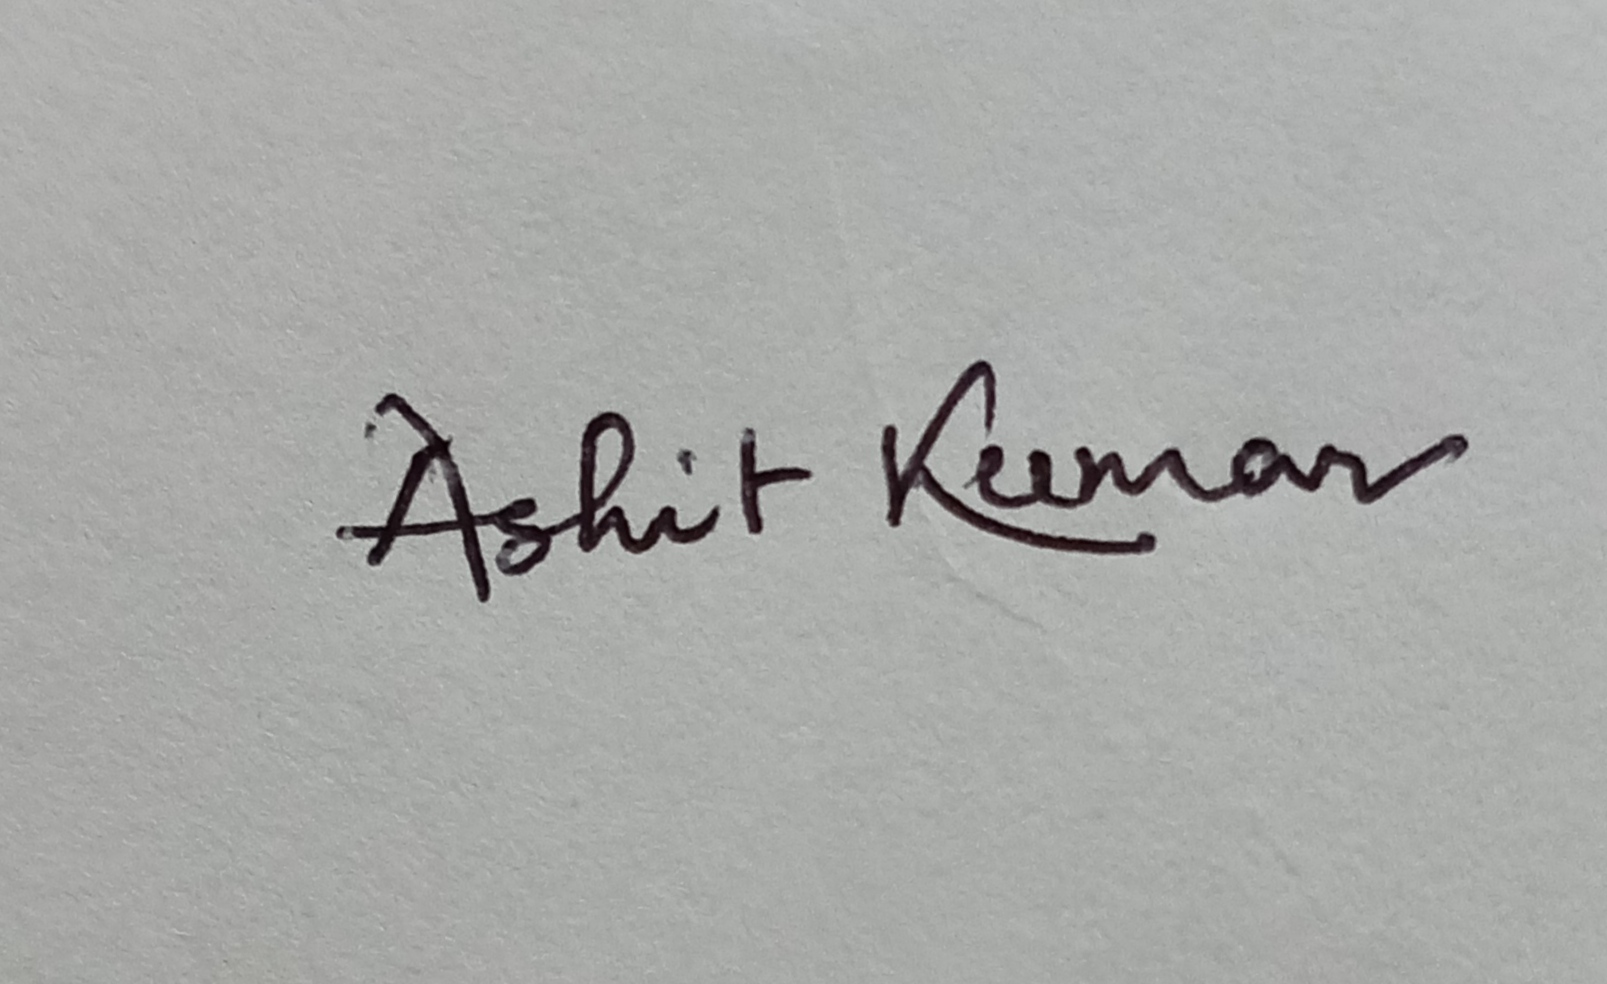 Ashit Kumar